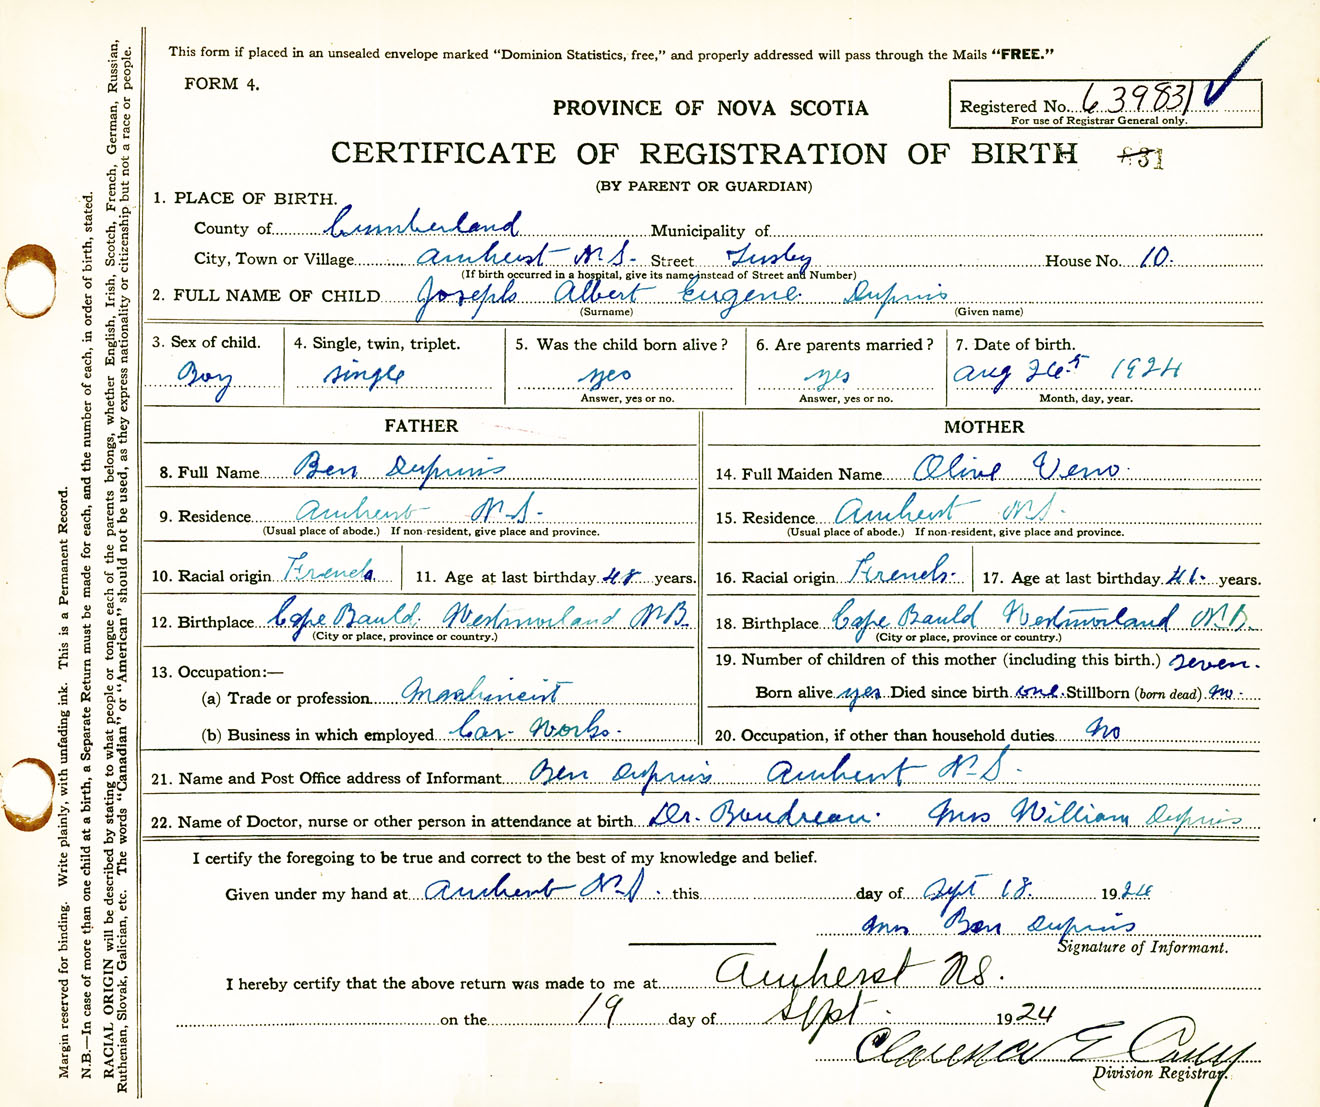 This form if placed in an unsealed envelope marked "Dominion Statistics, free," and properly addressed will pass through the Mails "FREE."
FORM 4.
Registered No. 639831
For use of Registrar General only.
PROVINCE OF NOVA SCOTIA
CERTIFICATE OF REGISTRATION OF BIRTH 831
(BY PARENT OR GUARDIAN)
1. PLACE OF BIRTH.
County of Cumberland Municipality of
City, Town or Village Amherst N.S. Street Lusby House No. 10.
(If birth occurred in a hospital, give its name instead of Street and Number)
2. FULL NAME OF CHILD Joseph Albert Eugene Dupuis
(Surname) (Given name)
3. Sex of child. 4. Single, twin, triplet. 5. Was the child born alive? 6. Are parents married? 7. Date of birth.
Boy single yes yes Aug 26 1924
Answer, yes or no. Answer, yes or no. Month, day, year.
FATHER
8. Full Name Ben Dupuis
9. Residence Amherst N.S.
(Usual place of abode.) If non-resident, give place and province.
10. Racial origin French 11. Age at last birthday 48 years.
12. Birthplace Cape Bauld. Westmorland N.B.
(City or place, province or country.)
13. Occupation:—
(a) Trade or profession Mashineist
(b) Business in which employed Car Works.
MOTHER
14. Full Maiden Name Olive Veno
15. Residence Amherst N.S.
(Usual place of abode.) If non-resident, give place and province.
16. Racial origin French. 17. Age at last birthday 41. years.
18. Birthplace Cape Bauld Westmorland N.B.
(City or place, province or country.)
19. Number of children of this mother (including this birth.) seven.
Born alive yes Died since birth one. Stillborn (born dead) no.
20. Occupation, if other than household duties No
21. Name and Post Office address of Informant Ben Dupuis Amherst N.S.
22. Name of Doctor, nurse or other person in attendance at birth Dr. Boudreau. Mrs William Dupuis
I certify the foregoing to be true and correct to the best of my knowledge and belief.
Given under my hand at Amherst N.S. this day of Sept 18. 1924
Mrs Ben Dupuis
Signature of Informant.
I hereby certify that the above return was made to me at Amherst NS.
on the 19 day of Sept. 1924
Clarence E
Division Registrar.
Margin reserved for binding. Write plainly, with unfading ink. This is a Permanent Record.
N.B.—In case of more than one child at a birth, a Separate Return must be made for each, and the number of each, in order of birth, stated.
RACIAL ORIGIN will be described by stating to what people or tongue each of the parents belongs, whether English, Irish, Scotch, French, German, Russian,
Ruthenian, Slovak, Galician, etc. The words "Canadian" or "American" should not be used, as they express nationality or citizenship but not a race or people.